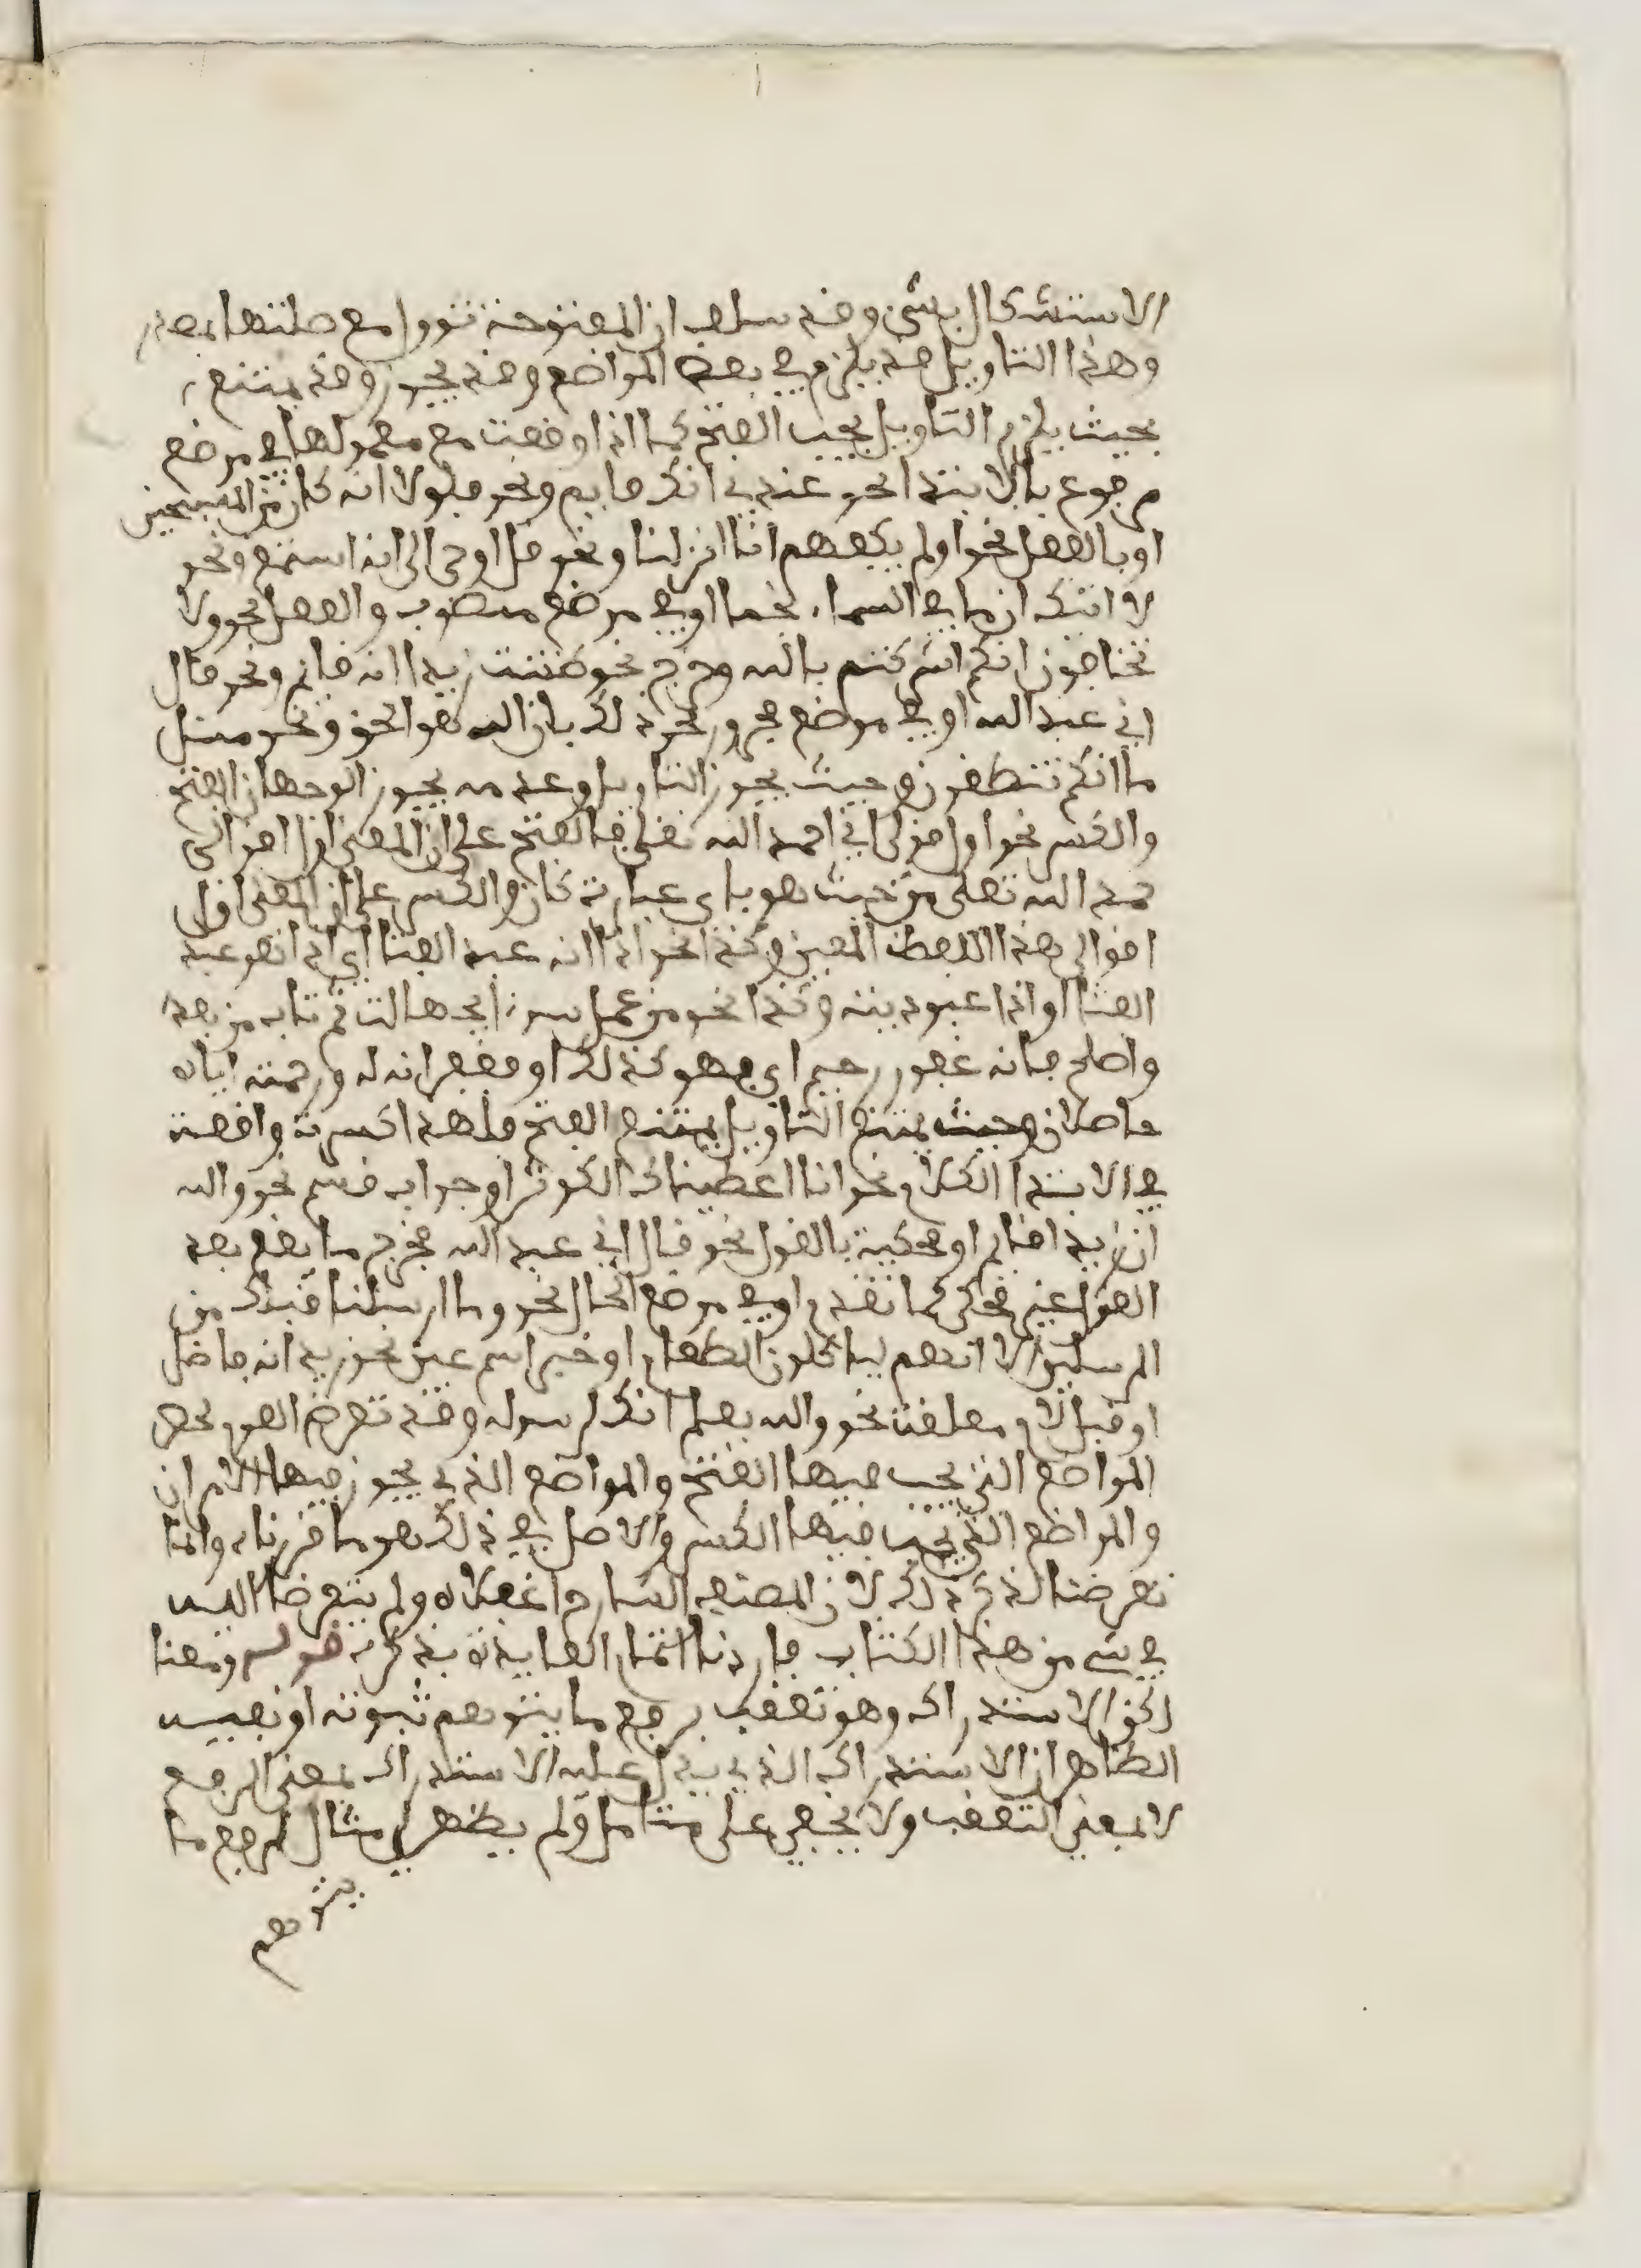 الاستشكال بشئ وقد سلف ان المفتوحة تؤول مع صلتها بمصدر
وهذا التاويل قد يلزم في بعض المواضع وقد يجوز وقد يمتنع
بحيث يلزم التاويل يجب الفتح كما اذا وقعت مع معمولها في موضع
مرفوع بالابتدا نحو عندي انك قايم ونحو فلولا انه كان من المسبحين
او بالفعل نحو اولم يكفهم انا انزلنا ونحو قل اوحى الى انه استمع ونحو
لا اتيك ان ما في السماء نجما او في موضع منصوب والفعل نحو ولا
تخافون انكم اشركتم بالله وخرج نحو ظننت زيدا انه قايم ونحو قال
اني عبد الله او في موضع مجرور نحو ذلك بان الله هو الحق ونحو مثل
ما انكم تنطقون وحيث يجوز التاويل وعدمه يجوز الوجهان الفتح
والكسر نحو اول قولى اني احمد الله تعلى فالفتح على ان المعنى اول اقوالى
حمد الله تعلى من حيث هو باى عبارة كان والكسر على ان المعنى اول
اقوالى هذا اللفظ المعين وكذا نحو اذا انه عبد القفا اي اذا هو عبد
القفا او اذا عبوديته وكذا نحو من عمل سوءا بجهالة ثم تاب من بعده
واصلح فانه غفور رحيم اى فهو كذلك او فغفرانه له ورحمته اياه
حاصلان وحيث يمتنع التاويل يمتنع الفتح فلهذا كسرت واقعة
في الابتدا الكلام نحو انا اعطيناك الكوثر او جواب قسم نحو والله
ان زيدا قايم او محكية بالقول نحو قال اني عبد الله فخرج ما يقع بعد
القول غير محكى كما تقدم او في موضع الحال نحو وما ارسلنا قبلك من
المرسلين الا انهم لياكلون الطعام او خبر اسم عين نحو زيد انه فاضل
او قبل لام معلقة نحو والله يعلم انك لرسوله وقد تعرض القوم لحصر
المواضع التي يجب فيها الفتح والمواضع الذي يجوز فيها الامران
والمواضع التي يجب فيها الكسر والاصل في ذلك هو ما قررناه وانما
تعرضنا لذكر ذلك لان المصنف الشارح اغفلاه ولم يتعرضا اليه
في شى من هذا الكتاب فاردنا اتمام الفايدة بذكره قوله ومعنا
لكن الاستدراك وهو تعقيب برفع ما يتوهم ثبوته او نفيه
الظاهر ان الاستدراك الذي يدل عليه الاستدراك بمعنى الرفع
لا بمعنى التعقيب ولا يخفى على متامل ولم يظهر لى مثال لرفع ما
يتوهم